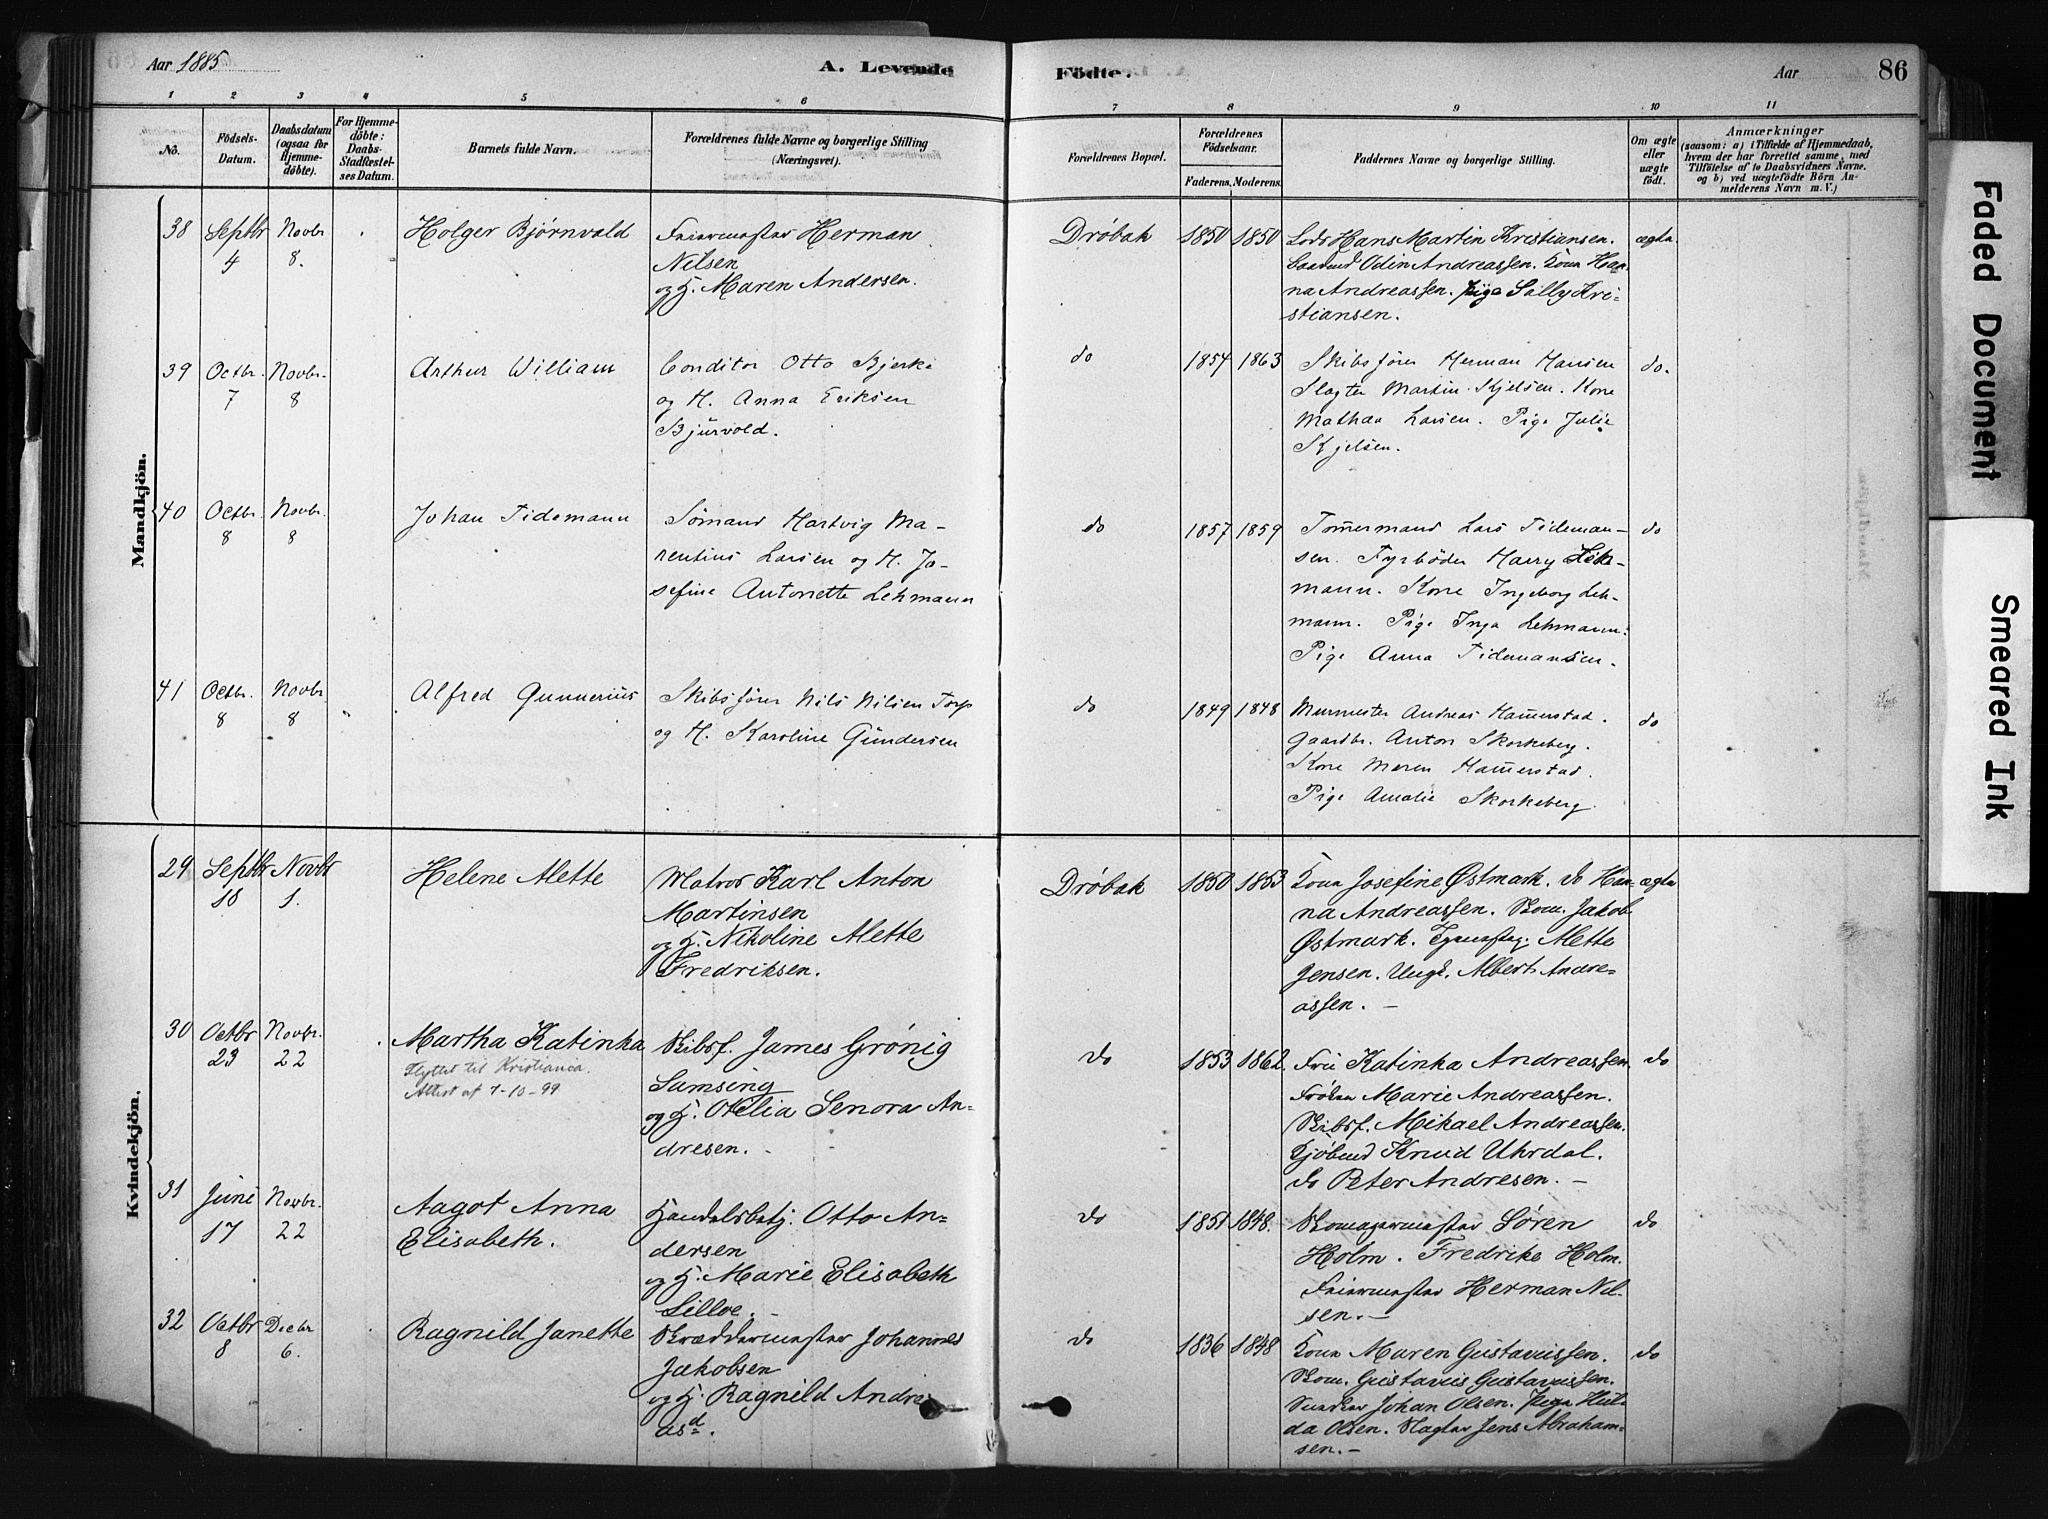 Aar 1885
A. Levende
Födte.
Aar
86
1 2 3 4 5 6 7 8 9 10 11
No.
Födsels-
Datum.
Daabsdatum
(ogsaa for
Hjemme-
döbte).
For Hjemme-
döbte:
Daabs-
Stadfæstel-
ses Datum.
Barnets fulde Navn.
Forældrenes fulde Navne og borgerlige Stilling
(Næringsvei).
Forældrenes Bopæl.
Forældrenes
Födselsaar.
Faderens. Moderens.
Faddernes Navne og borgerlige Stilling.
Om ægte
eller
uægte
födt.
Anmærkninger
(saasom: a) i Tilfælde af Hjemmedaab,
hvem der har forrettet samme, med
Tilföielse af to Daabsvidners Navne.
og b) ved uægtefödte Börn An-
melderens Navn m. V.)
Mandkjön.
38
Septbr
4
Novbr
8.
Holger Bjørnvald
Feiermester Herman
Nilsen
og H. Maren Andersen.
Drøbak
1850 1850
Lods Hans Martin Kristiansen.
Odin Andreassen. Kone Han-
na Andreassen. Pige Sally Kri-
stiansen.
ægte
39
Octbr.
7
Novbr.
8
Arthur William
Conditor Otto Bjerke
og H. Anna Eriksen
Bjurvold.
do
1854 1863
Skibsfører Herman Hansen
Slagter Martin Kjelsen. Kone
Mathea Larsen. Pige Julie
Kjelsen.
do.
40
Octbr.
8
Novbr.
8
Johan Tidemann
Sømand Hartvig Ma-
rentius Larsen og H. Jo-
sefine Antonette Lehmann
do
1857 1859
Tømermand Lars Tideman-
sen. Fyrbøder Harry Leh-
mann. Kone Ingeborg Leh-
mann. Pige Inga Lehmann.
Pige Anna Tidemansen.
do
41
Octbr.
8
Novbr
8
Alfred Gunnerius
Skibsfører Nils Nilsen Torp
og H. Karoline Gundersen
do
1849 1848
Murmester Andreas Hamerstad.
Gaardbr. Anton Skorkeberg.
Kone Maren Hamerstad.
Pige Amalie Skorkeberg.
do
Kvindekjön.
29
Septbr
18
Novbr
1.
Helene Alette
Matros Karl Anton
Martinsen
og H. Nikoline Alette
Fredriksen.
Drøbak
1850 1853
Kone Josefine Østmark. do Han-
na Andreassen. Skom. Jakob
Østmark. Tjenestep. Alette
Jensen. Ungk. Albert Andre-
assen. –
ægte
30
Octbr
23
Novbr.
22
Martha Katinka
Flyttet til Kristiania.
Attest af 7-10-99
Skibsf. James Grønig
Samsing
og H. Otelia Senora An-
dresen. -
do
1853 1862.
Fru Katinka Andreassen
Frøken Marie Andreassen.
Skibsf. Mikael Andreassen.
Kjøbmd Knud Uhrdal.
do Peter Andresen. –
do
31
Juni
17
Novbr.
22
Aagot Anna
Elisabeth.
Handelsbetj. Otto An-
dersen
og H. Marie Elisabeth
Lilloe. -
do
1851 1848.
Skomagermester Søren
Holm. Fredrike Holm.
Feiermester Herman Nil-
sen. –
do
32
Octbr
8
Decbr
6.
Ragnild Janette
Skræddermester Johannes
Jakobsen
og H. Ragnild Andre
asd.
do
1836 1848
Kone Maren Gustavussen.
Skom. Gustavus Gustavussen.
Snedker Johan Olsen. Pige Hul-
da Olsen. Slagter Jens Abraham-
sen. –
do
Faded Document
Smeared Ink